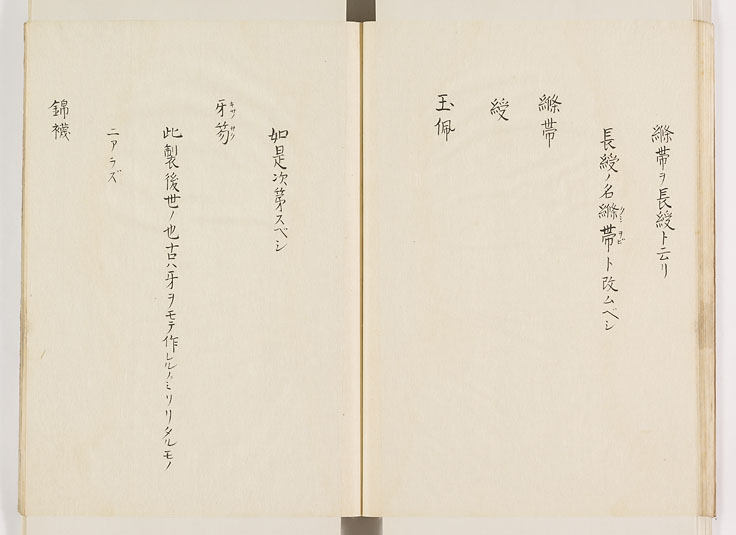 縧帯ヲ長綬ト云リ
長綬ノ名縧帯クミヲビト改ムベシ
縧帯
綬
玉佩
如是次第スベシ
牙笏キサノサク
此製後世ノ也古ハ牙ヲモテ作レルノミソリタルモノ
ニアラズ
錦襪